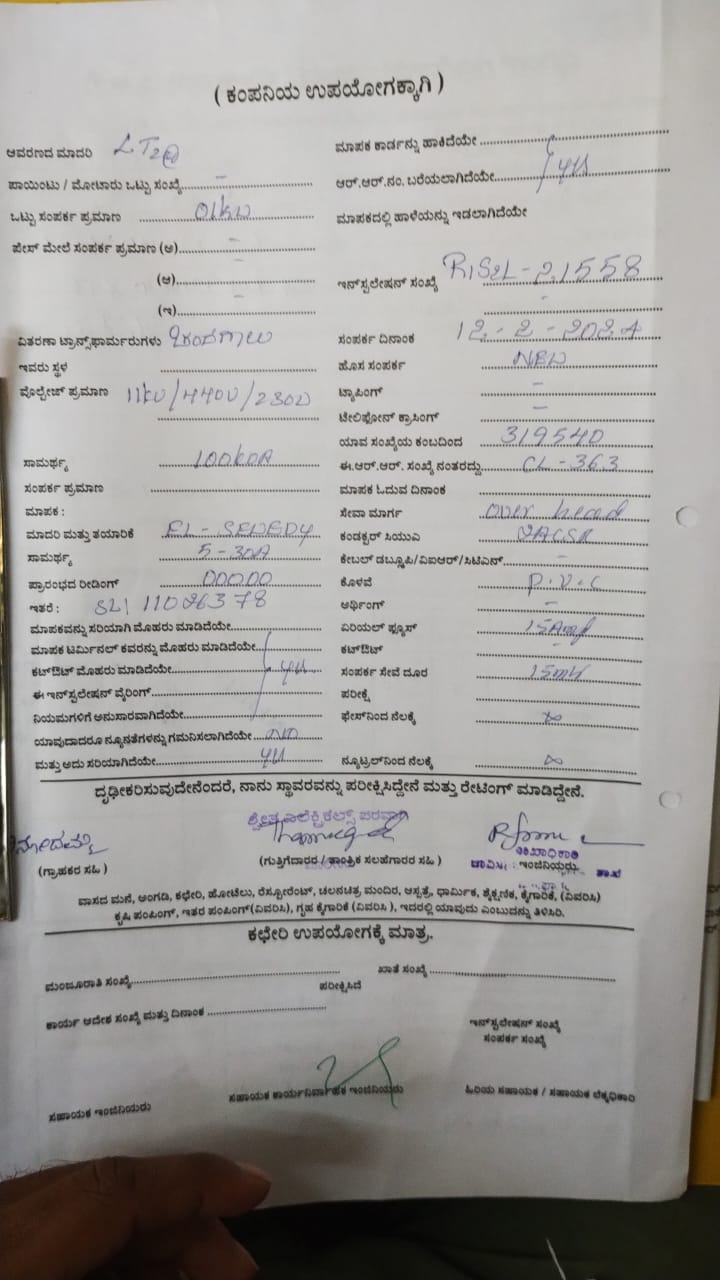 ( ಕಂಪನಿಯ ಉಪಯೋಗಕ್ಕಾಗಿ )
ಆವರಣದ ಮಾದರಿ LT2@
ಮಾಪಕ ಕಾರ್ಡನ್ನು ಹಾಕಿದೆಯೇ
ಪಾಯಿಂಟು / ಮೋಟಾರು ಒಟ್ಟು ಸಂಖ್ಯೆ -
ಆರ್.ಆರ್.ನಂ. ಬರೆಯಲಾಗಿದೆಯೇ
ಒಟ್ಟು ಸಂಪರ್ಕ ಪ್ರಮಾಣ 01kw
ಮಾಪಕದಲ್ಲಿ ಹಾಳೆಯನ್ನು ಇಡಲಾಗಿದೆಯೇ
ಪೇಸ್ ಮೇಲೆ ಸಂಪರ್ಕ ಪ್ರಮಾಣ (ಅ) -
(ಆ) -
ಇನ್‌ಸ್ಟಲೇಷನ್ ಸಂಖ್ಯೆ -21558
(ಇ) -
-
ವಿತರಣಾ ಟ್ರಾನ್ಸ್‌ಫಾರ್ಮರುಗಳು
ಸಂಪರ್ಕ ದಿನಾಂಕ 12-2-2024
ಇವರು ಸ್ಥಳ
ಹೊಸ ಸಂಪರ್ಕ NEW
ವೊಲ್ಟೇಜ್ ಪ್ರಮಾಣ 11kV/440V/230V
ಟ್ಯಾಪಿಂಗ್ -
ಟೇಲಿಫೋನ್ ಕ್ರಾಸಿಂಗ್ -
ಯಾವ ಸಂಖ್ಯೆಯ ಕಂಬದಿಂದ 319540
ಸಾಮರ್ಥ್ಯ 100kVA
ಈ.ಆರ್.ಆರ್. ಸಂಖ್ಯೆ ನಂತರದ್ದು CL-363
ಸಂಪರ್ಕ ಪ್ರಮಾಣ
ಮಾಪಕ ಓದುವ ದಿನಾಂಕ
ಮಾಪಕ :
ಸೇವಾ ಮಾರ್ಗ over head
ಮಾದರಿ ಮತ್ತು ತಯಾರಿಕೆ
ಕಂಡಕ್ಟರ್ ಸಿಯುಎ
ಸಾಮರ್ಥ್ಯ 5-30A
ಕೇಬಲ್ ಡಬ್ಲ್ಯೂಪಿ/ವಿಐಆರ್/ಸಿಟಿಎಸ್ -
ಪ್ರಾರಂಭದ ರೀಡಿಂಗ್ 00000
ಕೊಳವೆ P.V.C
ಇತರೆ : SL1 11026378
ಅರ್ಥಿಂಗ್ -
ಮಾಪಕವನ್ನು ಸರಿಯಾಗಿ ಮೊಹರು ಮಾಡಿದೆಯೇ
ಏರಿಯಲ್ ಫ್ಯೂಸ್ 15Amp
ಮಾಪಕ ಟರ್ಮಿನಲ್ ಕವರನ್ನು ಮೊಹರು ಮಾಡಿದೆಯೇ
ಕಟ್‌ಔಟ್
ಕಟ್‌ಔಟ್ ಮೊಹರು ಮಾಡಿದೆಯೇ
ಸಂಪರ್ಕ ಸೇವೆ ದೂರ 15mtr
ಈ ಇನ್‌ಸ್ಟಲೇಷನ್ ವೈರಿಂಗ್
ಪರೀಕ್ಷೆ
ನಿಯಮಗಳಿಗೆ ಅನುಸಾರವಾಗಿದೆಯೇ
ಫೇಸ್‌ನಿಂದ ನೆಲಕ್ಕೆ ∞
ಯಾವುದಾದರೂ ನ್ಯೂನತೆಗಳನ್ನು ಗಮನಿಸಲಾಗಿದೆಯೇ NO
ಮತ್ತು ಅದು ಸರಿಯಾಗಿದೆಯೇ
ನ್ಯೂಟ್ರಲ್‌ನಿಂದ ನೆಲಕ್ಕೆ ∞
ದೃಢೀಕರಿಸುವುದೇನೆಂದರೆ, ನಾನು ಸ್ಥಾವರವನ್ನು ಪರೀಕ್ಷಿಸಿದ್ದೇನೆ ಮತ್ತು ರೇಟಿಂಗ್ ಮಾಡಿದ್ದೇನೆ.
(ಗ್ರಾಹಕರ ಸಹಿ )
(ಗುತ್ತಿಗೆದಾರರ / ತಾಂತ್ರಿಕ ಸಲಹೆಗಾರರ ಸಹಿ )
ಇಂಜಿನಿಯರು
ಶಾಖೆ
ವಾಸದ ಮನೆ, ಅಂಗಡಿ, ಕಛೇರಿ, ಹೋಟೆಲು, ರೆಸ್ಟೋರೆಂಟ್, ಚಲನಚಿತ್ರ ಮಂದಿರ, ಆಸ್ಪತ್ರೆ, ಧಾರ್ಮಿಕ, ಶೈಕ್ಷಣಿಕ, ಕೈಗಾರಿಕೆ, (ವಿವರಿಸಿ)
ಕೃಷಿ ಪಂಪಿಂಗ್, ಇತರ ಪಂಪಿಂಗ್(ವಿವರಿಸಿ), ಗೃಹ ಕೈಗಾರಿಕೆ (ವಿವರಿಸಿ ), ಇದರಲ್ಲಿ ಯಾವುದು ಎಂಬುದನ್ನು ತಿಳಿಸಿರಿ.
ಕಛೇರಿ ಉಪಯೋಗಕ್ಕೆ ಮಾತ್ರ.
ಮಂಜೂರಾತಿ ಸಂಖ್ಯೆ
ಖಾತೆ ಸಂಖ್ಯೆ
ಪರೀಕ್ಷಿಸಿದೆ
ಕಾರ್ಯ ಆದೇಶ ಸಂಖ್ಯೆ ಮತ್ತು ದಿನಾಂಕ
ಇನ್‌ಸ್ಟಲೇಷನ್ ಸಂಖ್ಯೆ
ಸಂಪರ್ಕ ಸಂಖ್ಯೆ
ಸಹಾಯಕ ಇಂಜಿನಿಯರು
ಸಹಾಯಕ ಕಾರ್ಯನಿರ್ವಾಹಕ ಇಂಜಿನಿಯರು
ಹಿರಿಯ ಸಹಾಯಕ / ಸಹಾಯಕ ಲೆಕ್ಕಧಿಕಾರಿ